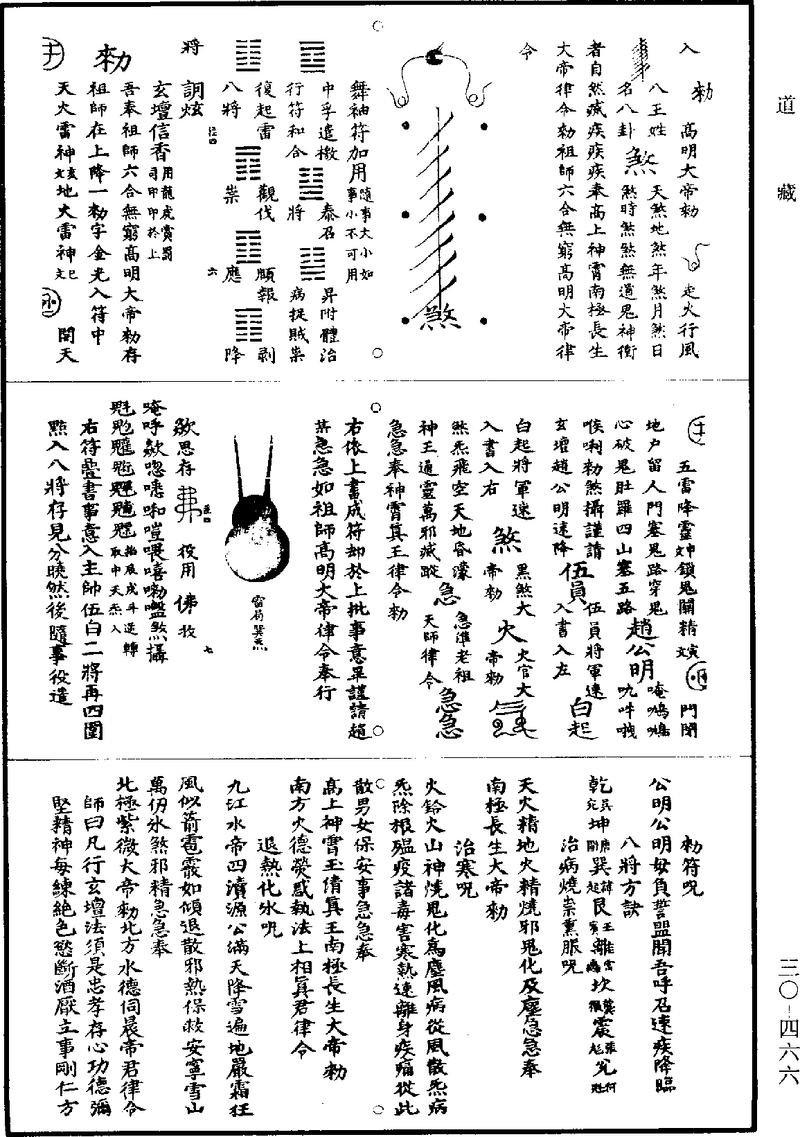 道藏
入
勅 高明大帝勅 走火行風
八王姓 天煞地煞年煞月煞日
名八卦 煞 煞時煞煞煞無道鬼神衝
者自然滅疾疾疾奉高上神霄南極長生
大帝律令勅祖師六合無窮高明大帝律
令
煞
舞袖符加用 隨事大小如事小不可用
中孚遣檄 泰召 昇附體治
行符和合 將 病捉賊祟
復起雷 觀伐 頤報 剝
八將 祟 應 降
將
詞炫
玄壇信香 用龍虎賞罰司印印於上
吾奉祖師六合無窮高明大帝勅存
勅 祖師在上降一勅字金光入符中
天火雷神 地火雷神 開天
五雷降靈 鎖鬼關精 門閉
地戶留人門塞鬼路穿鬼
心破鬼肚羅四山塞五路 趙公明
喉唎勅煞攝謹請 伍員 伍員將軍速
玄壇趙公明速降 入書入左 白起
白起將軍速 煞 黑煞大 火 火官大
入書入右 帝勅 帝勅
煞炁飛空天地昏濛 急 急準老祖 急急
神王通靈萬邪滅蹤 天師律令
急急奉神霄真王律令勅
右依上書成符却於上批事意畢謹請趙
某急急如祖師高明大帝律令奉行
雷局
歛思存 役用
右符疊書事意入主帥伍白二將再四圍
點入八將存見分曉然後隨事役遣
勅符呪
公明公明毋負誓盟聞吾呼召速疾降臨
八將方訣
治病燒祟熏服呪
天火精地火精燒邪鬼化及塵急急奉
南極長生大帝勅
治寒呪
火鈴火山神燒鬼化為塵風病從風散炁病
炁除根瘟疫諸毒害寒熱速離身疾痛從此
散男女保安事急急奉
高上神霄玉清真王南極長生大帝勅
南方火德熒惑執法上相真君律令
退熱化水呪
九江水帝四瀆源公滿天降雪遍地嚴霜狂
風似箭雹霰如傾退散邪熱保救安寧雪山
萬仞氷煞邪精急急奉
北極紫微大帝勅北方水德伺晨帝君律令
師曰凡行玄壇法須是忠孝存心功德彌
堅精神每練絕色慾斷酒厭立事剛仁方
三〇–四六六